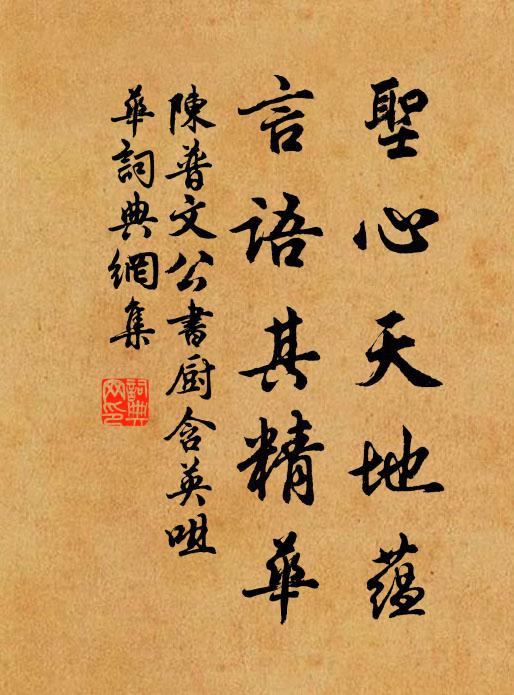 聖心天地蘊
言語其精華
陳普文公書厨含英咀
華詞典網集
詞典
网印